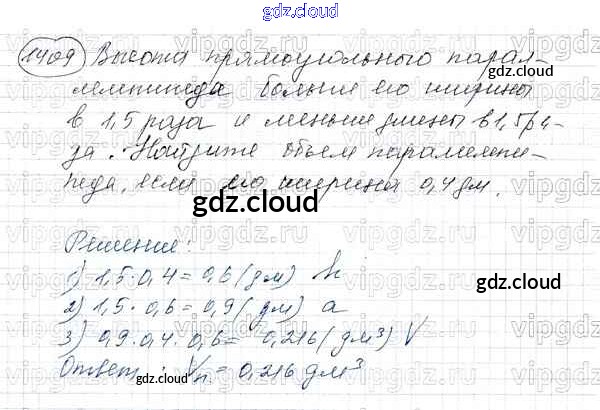 gdz.cloud
1409 Высота прямоугольного парал-
лелепипеда больше его ширины
в 1,5 раза и меньше длины в 1,5 ра-
за. Найдите объем параллелепи-
педа, если его ширина 0,4 дм.
gdz.cloud
Решение:
1) 1,5 · 0,4 = 0,6 (дм) h
2) 1,5 · 0,6 = 0,9 (дм) a
3) 0,9 · 0,4 · 0,6 = 0,216 (дм³) V
Ответ: Vп = 0,216 дм³
gdz.cloud
gdz.cloud
gdz.cloud
gdz.cloud
vipgdz